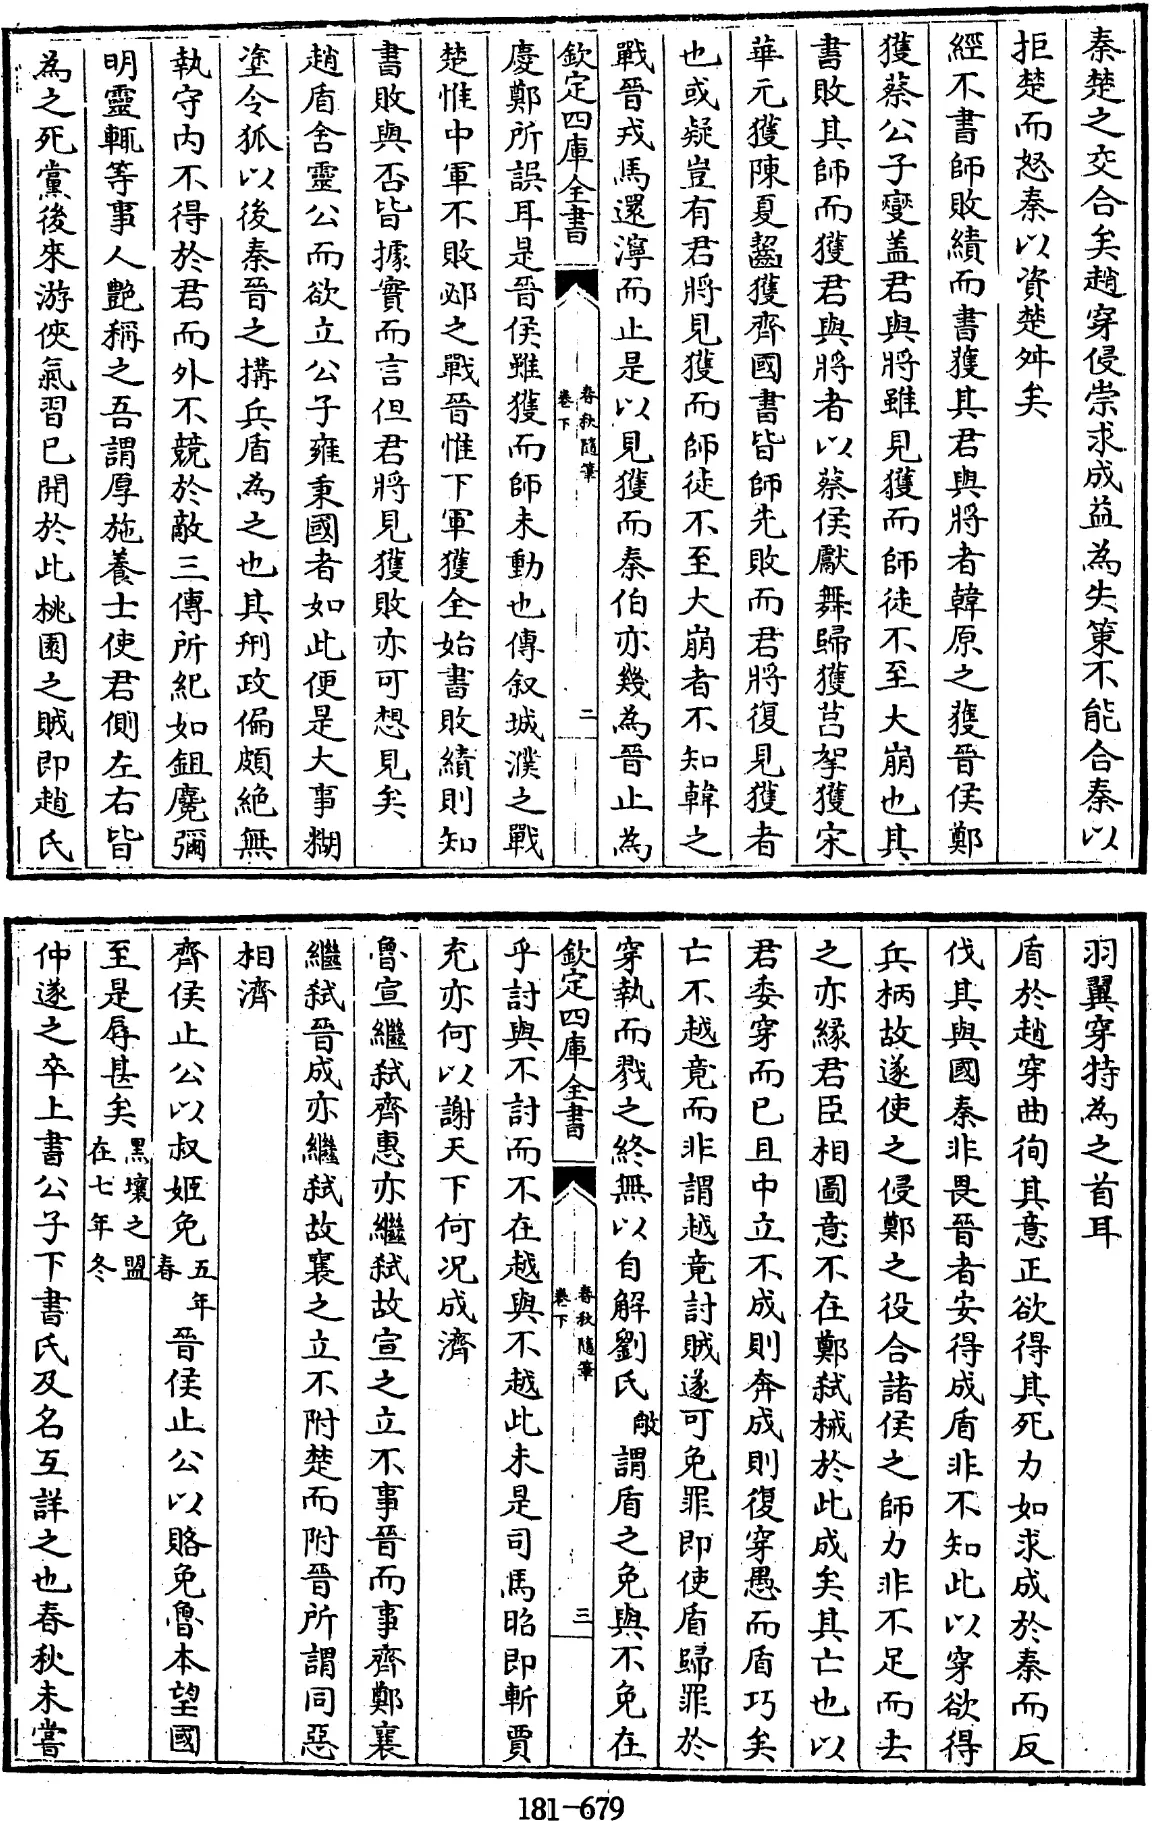 秦楚之交合矣趙穿侵崇求成益為失策不能合秦以
拒楚而怒秦以資楚舛矣
經不書師敗績而書獲其君與將者韓原之獲晉侯鄭
獲蔡公子燮盖君與將雖見獲而師徒不至大崩也其
書敗其師而獲君與將者以蔡侯獻舞歸獲莒挐獲宋
華元獲陳夏齧獲齊國書皆師先敗而君將復見獲者
也或疑豈有君將見獲而師徒不至大崩者不知韓之
戰晉戎馬還濘而止是以見獲而秦伯亦幾為晉止為
欽定四庫全書
春秋隨筆
卷下
二
慶鄭所誤耳是晉侯雖獲而師未動也傳叙城濮之戰
楚惟中軍不敗邲之戰晉惟下軍獲全始書敗績則知
書敗與否皆據實而言但君將見獲敗亦可想見矣
趙盾舍靈公而欲立公子雍秉國者如此便是大事糊
塗令狐以後秦晉之搆兵盾為之也其刑政偏頗絶無
執守内不得於君而外不競於敵三傳所紀如鉏麑彌
明靈輒等事人艶稱之吾謂厚施養士使君側左右皆
為之死黨後來游俠氣習已開於此桃園之賊即趙氏
羽翼穿特為之首耳
盾於趙穿曲徇其意正欲得其死力如求成於秦而反
伐其與國秦非畏晉者安得成盾非不知此以穿欲得
兵柄故遂使之侵鄭之役合諸侯之師力非不足而去
之亦緣君臣相圖意不在鄭弑械於此成矣其亡也以
君委穿而已且中立不成則奔成則復穿愚而盾巧矣
亡不越竟而非謂越竟討賊遂可免罪即使盾歸罪於
穿執而戮之終無以自解劉氏敞謂盾之免與不免在
欽定四庫全書
春秋隨筆
卷下
三
乎討與不討而不在越與不越此未是司馬昭即斬賈
充亦何以謝天下何况成濟
魯宣繼弑齊惠亦繼弑故宣之立不事晉而事齊鄭襄
繼弑晉成亦繼弑故襄之立不附楚而附晉所謂同惡
相濟
齊侯止公以叔姬免五年春晉侯止公以賂免魯本望國
至是辱甚矣黑壤之盟在七年冬
仲遂之卒上書公子下書氏及名互詳之也春秋未嘗
181-679